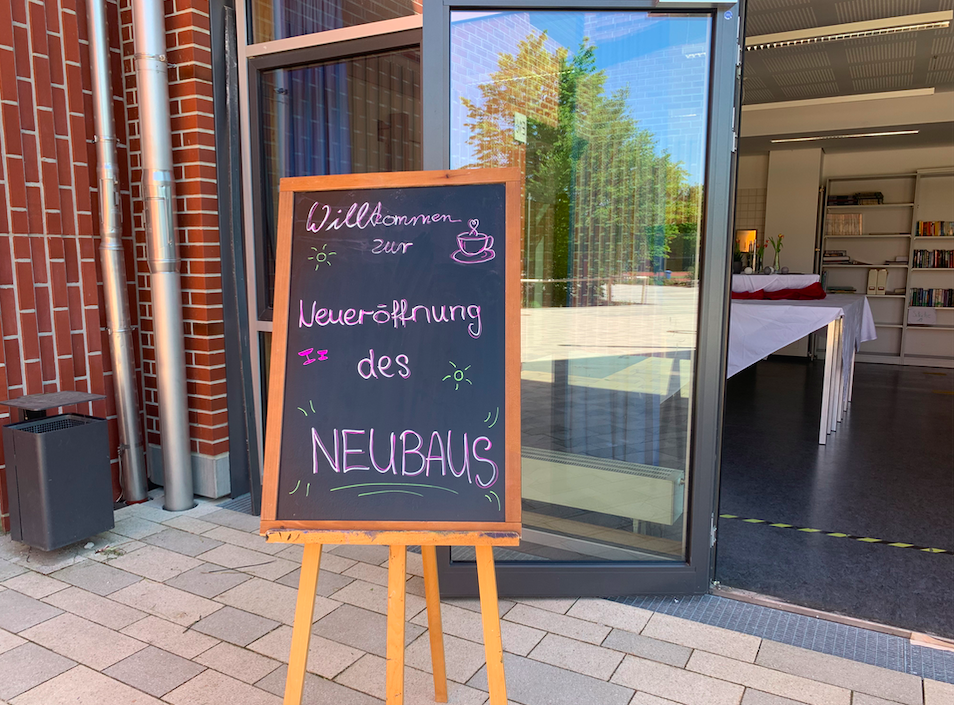 Willkommen
zur
Neueröffnung
des
NEUBAUS